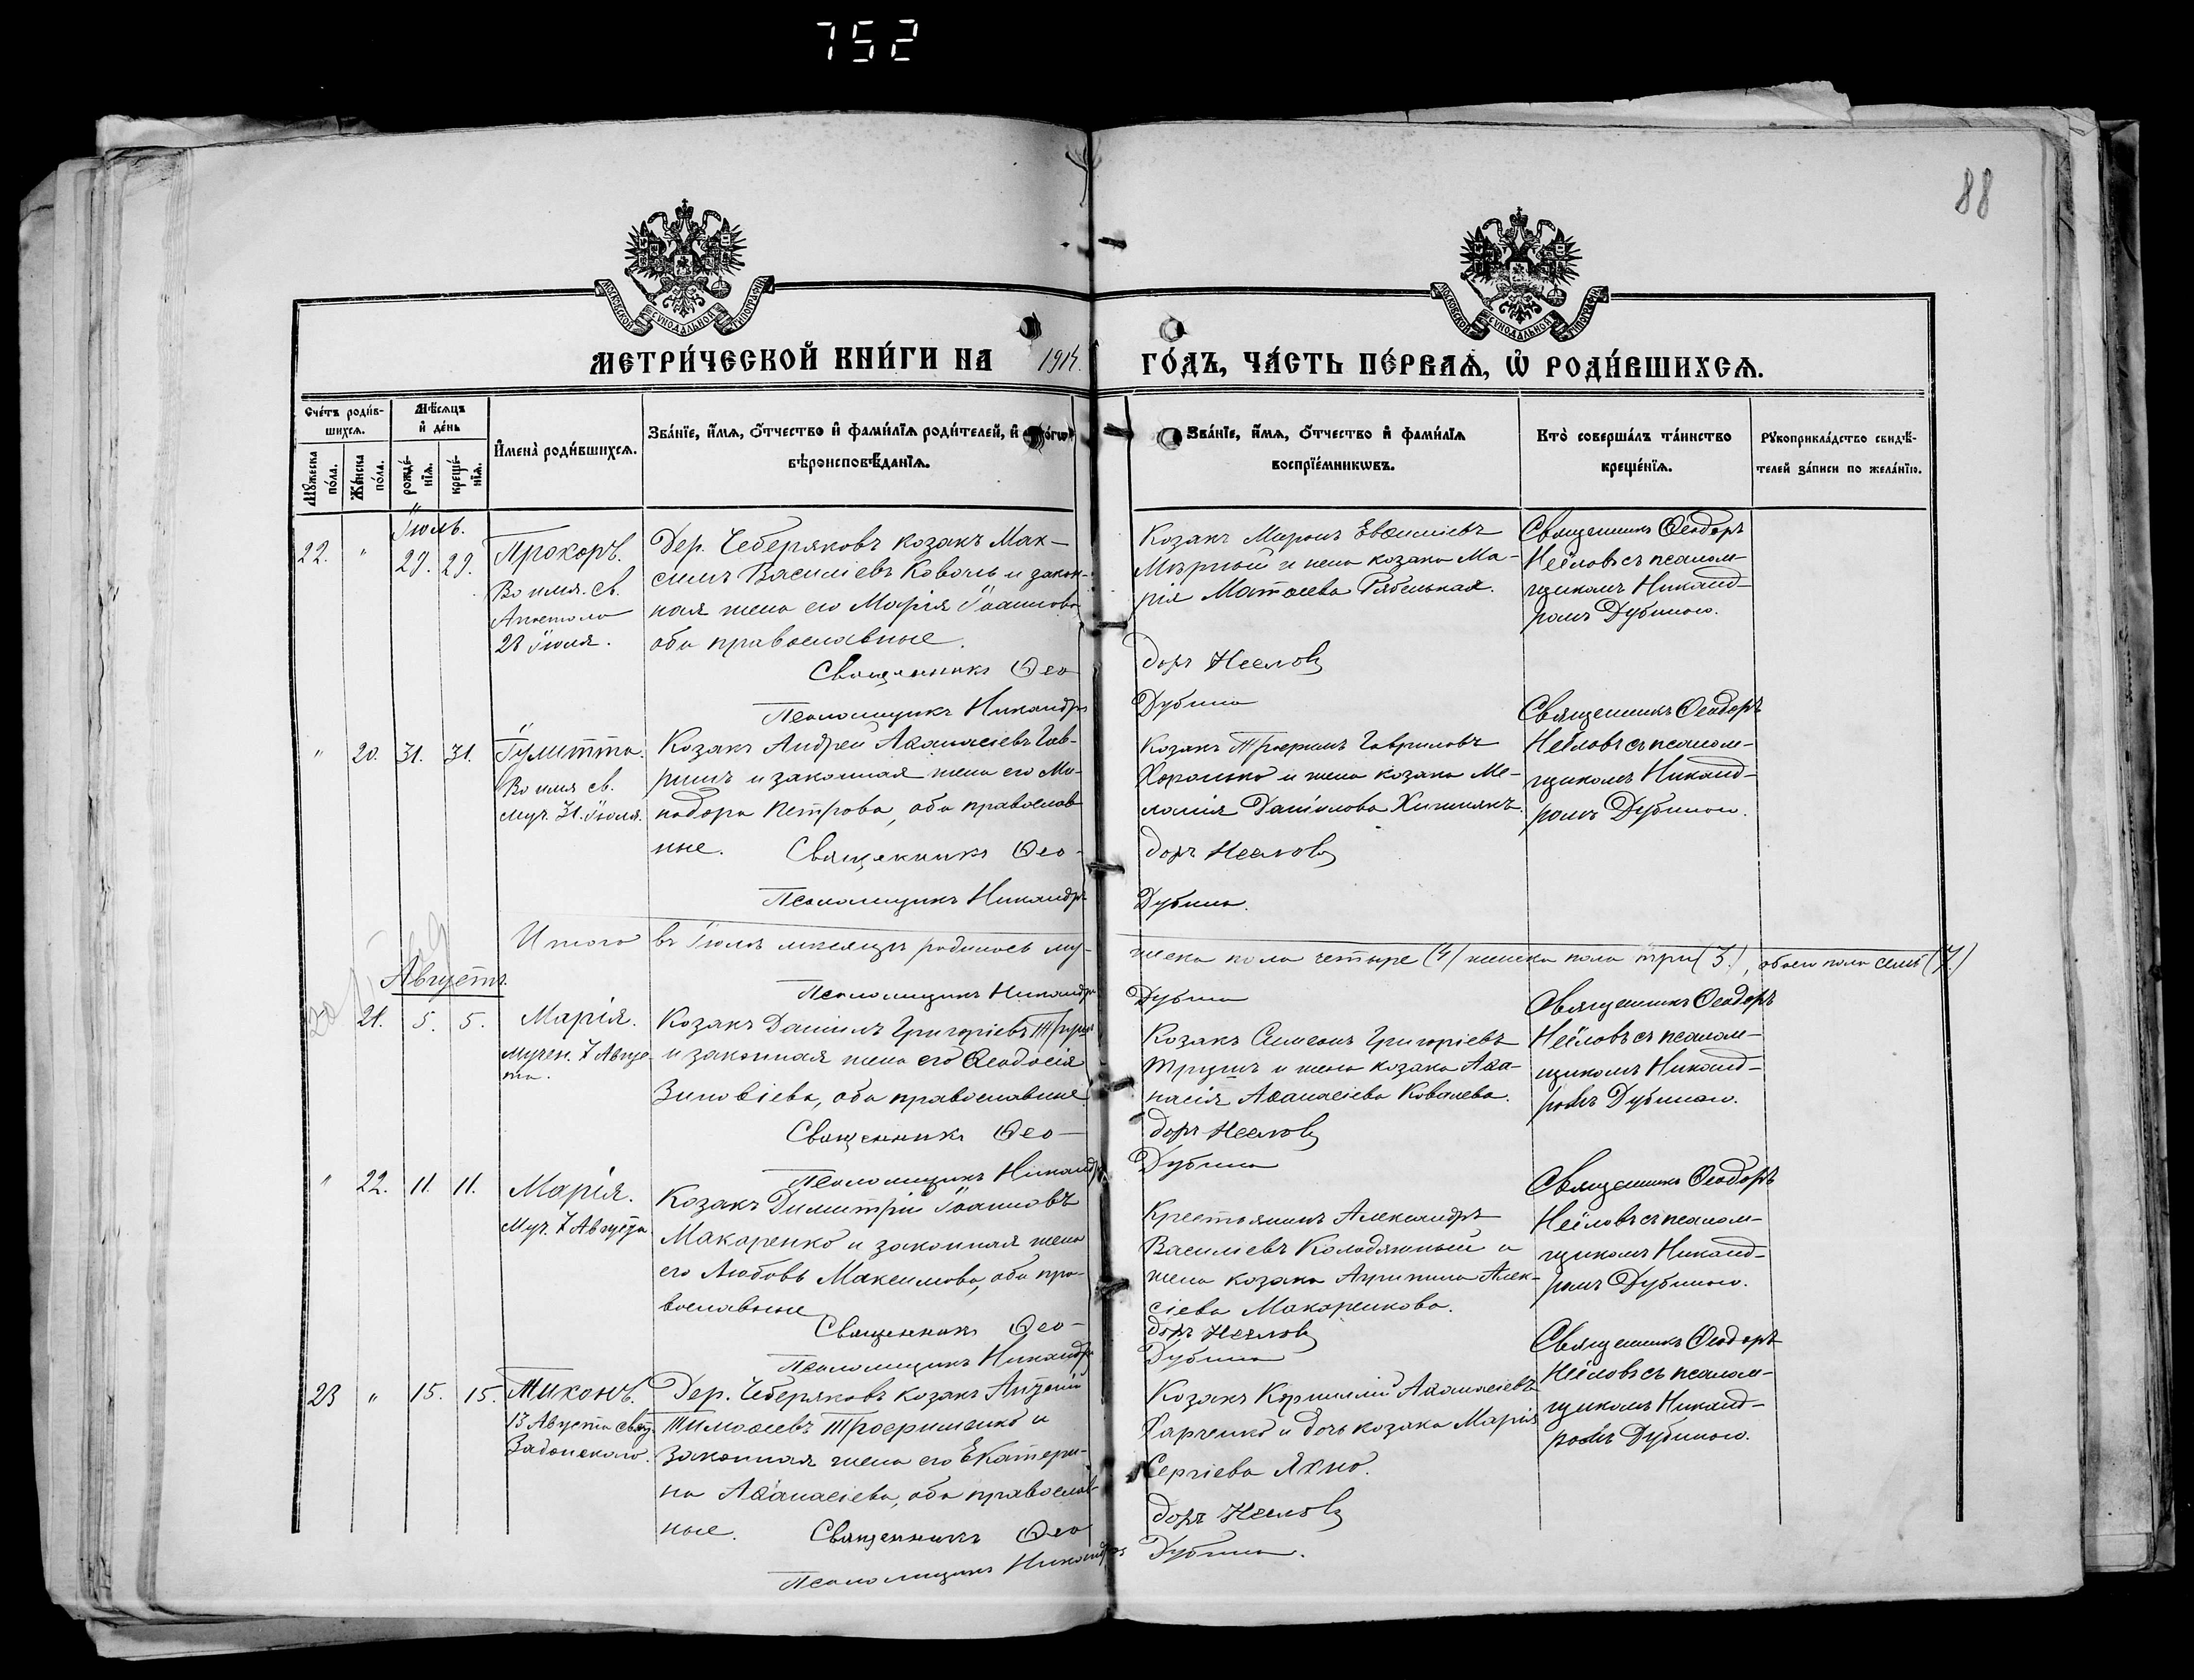 752
88
МОСКОВСКОЙ СѴНОДАЛЬНОЙ ТИПОГРАФІИ
МОСКОВСКОЙ СѴНОДАЛЬНОЙ ТИПОГРАФІИ
МЕТРИ́ЧЕСКОЙ КНИ́ГИ НА 1914. ГО́ДЪ, ЧА́СТЬ ПЕ́РВАѦ, Ѽ РОДИ́ВШИХСѦ.
Сче́тъ роди́в-
шихсѧ.
Мѣ́сѧцъ
и҆ де́нь
Мꙋ́жеска
по́ла.
Же́нска
по́ла.
рожде́-
нїѧ.
креще́-
нїѧ.
И҆мена̀ роди́вшихсѧ.
Зва́нїе, и҆́мѧ, ѻ҆́тчество и҆ фами́лїѧ роди́телей, и҆
вѣроисповѣ́данїѧ.
Зва́нїе, и҆́мѧ, ѻ҆́тчество и҆ фами́лїѧ
воспрїе́мникѡвъ.
Кто̀ соверша́лъ та́инство
креще́нїѧ.
Рꙋкоприкла́дство свидѣ́-
телей за́писи по жела́нїю.
Іюль.
22. " 29. 29.
Прохоръ.
Во имя св.
Апостола
28 Іюля.
Дер. Чеберяковъ козакъ Мак-
симъ Василіевъ Коваль и закон-
ная жена его Марія Іоаннова
оба православные.
Священникъ Ѳео-
Псаломщикъ Никандръ
Козакъ Миронъ Евѳиміевъ
Мѣрный и жена козака Ма-
рія Матѳеева Рябенькая.
доръ Неёловъ
Дубина
Священникъ Ѳеодоръ
Неёловъ съ псалом-
щикомъ Никанд-
ромъ Дубиною.
" 20. 31. 31.
Іулитта.
Во имя св.
муч. 31. Іюля.
Козакъ Андрей Аѳанасіевъ Гав-
ришъ и законная жена его Ми-
надора Петрова, оба православ
ные. Священникъ Ѳео-
Псаломщикъ Никандръ
Козакъ Трофимъ Гавриловъ
Харонько и жена козака Ме-
ланія Даніилова Хижнякъ.
доръ Неёловъ
Дубина.
Священникъ Ѳеодоръ
Неёловъ съ псалом-
щикомъ Никанд-
ромъ Дубиною.
Итого въ Іюлѣ мѣсяцѣ родилось му-
жеска пола четыре (4) женска пола три (3.), обоего пола семь (7.)
Псаломщикъ Никандръ
Дубина
Августъ.
21. 5. 5.
Марія.
Мучен. 7 Авгус
та.
Козакъ Даніилъ Григоріевъ Трушъ
и законная жена его Ѳеодосія
Зиновіева, оба православные.
Священникъ Ѳео-
Псаломщикъ Никандръ
Козакъ Симеонъ Григоріевъ
Трушъ и жена козака Аѳа-
насія Аѳанасіева Ковалева.
доръ Неёловъ
Дубина
Священникъ Ѳеодоръ
Неёловъ съ псалом-
щикомъ Никанд-
ромъ Дубиною.
" 22. 11. 11.
Марія.
Муч. 7 Августа
Козакъ Димитрій Іоанновъ
Макаренко и законная жена
его Любовь Максимова, оба пра-
вославные
Священникъ Ѳео-
Псаломщикъ Никандръ
Крестьянинъ Александръ
Василіевъ Колодяжный и
жена козака Агрипина Алек-
сіева Макаренкова.
доръ Неёловъ
Дубина
Священникъ Ѳеодоръ
Неёловъ съ псалом-
щикомъ Никанд-
ромъ Дубиною.
23 " 15. 15.
Тихонъ.
13 Августа Свят.
Задонскаго.
Дер. Чеберяковъ козакъ Антоній
Тимоѳеевъ Трофименко и
законная жена его Екатери-
на Аѳанасіева, оба православ-
ные. Священникъ Ѳео
Псаломщикъ Никандръ
Козакъ Корнилій Аѳанасіевъ
Харченко и дочь козака Марія
Сергіева Яхно.
доръ Неёловъ
Дубина.
Священникъ Ѳеодоръ
Неёловъ съ псалом-
щикомъ Никанд-
ромъ Дубиною.